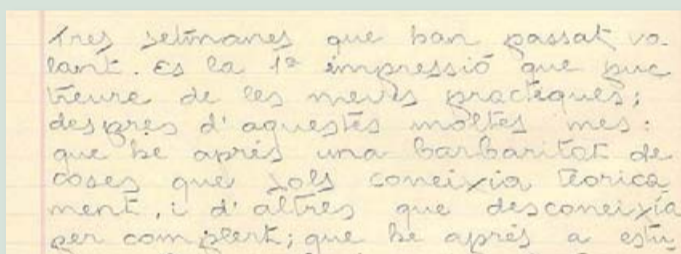 Tres setmanes que han passat vo
lant. Es la 1ª impressió que puc
treure de les meves practeques;
despres d'aquestes moltes mes:
que he aprés una barbaritat de
coses que sols coneixia teorica
ment, i d'altres que desconeixía
per complert; que he aprés a estu